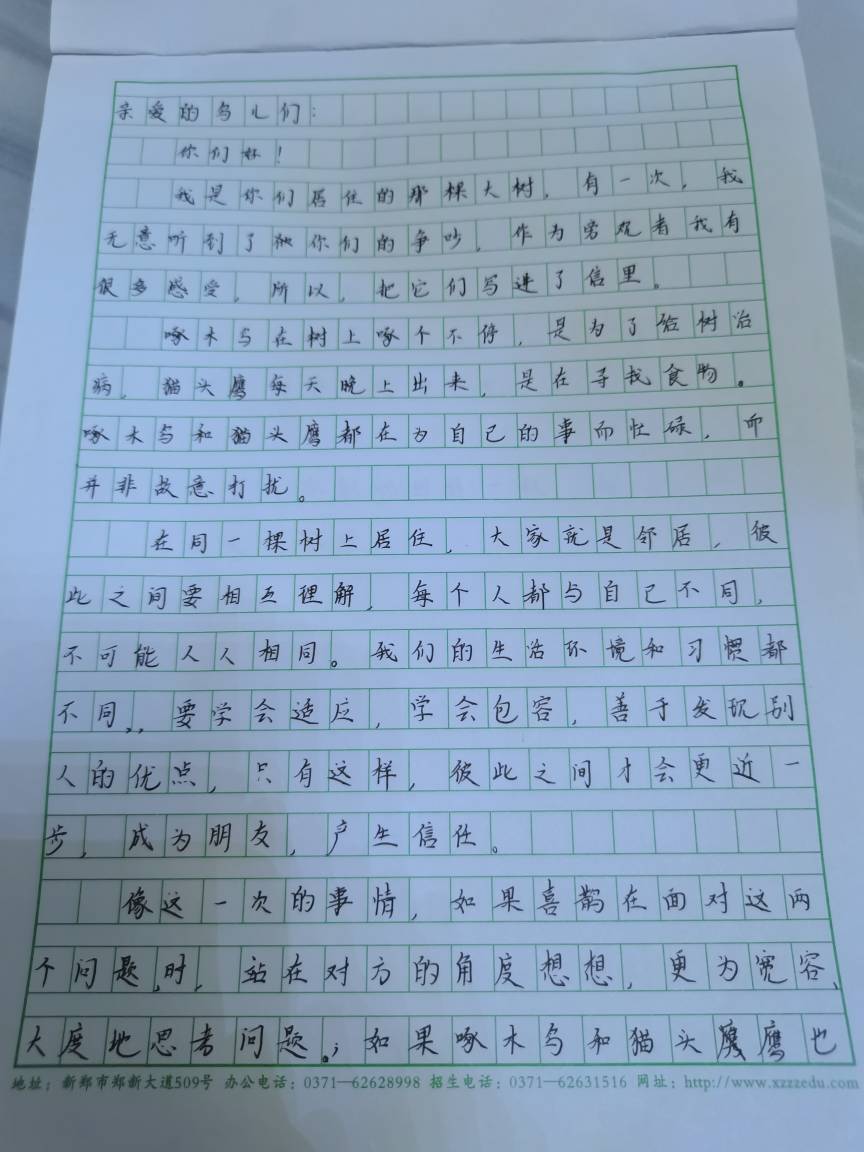 亲爱的鸟儿们：
你们好！
我是你们居住的那棵大树，有一次，我
无意听到了你们的争吵，作为旁观者我有
很多感受，所以，把它们写进了信里。
啄木鸟在树上啄个不停，是为了给树治
病，猫头鹰每天晚上出来，是在寻找食物。
啄木鸟和猫头鹰都在为自己的事而忙碌，而
并非故意打扰。
在同一棵树上居住，大家就是邻居，彼
此之间要相互理解，每个人都与自己不同，
不可能人人相同。我们的生活环境和习惯都
不同，要学会适应，学会包容，善于发现别
人的优点，只有这样，彼此之间才会更近一
步，成为朋友，产生信任。
像这一次的事情，如果喜鹊在面对这两
个问题时，站在对方的角度想想，更为宽容、
大度地思考问题；如果啄木鸟和猫头鹰也
地址：新郑市郑新大道509号 办公电话：0371—62628998 招生电话：0371—62631516 网址：http://www.xzzzedu.com